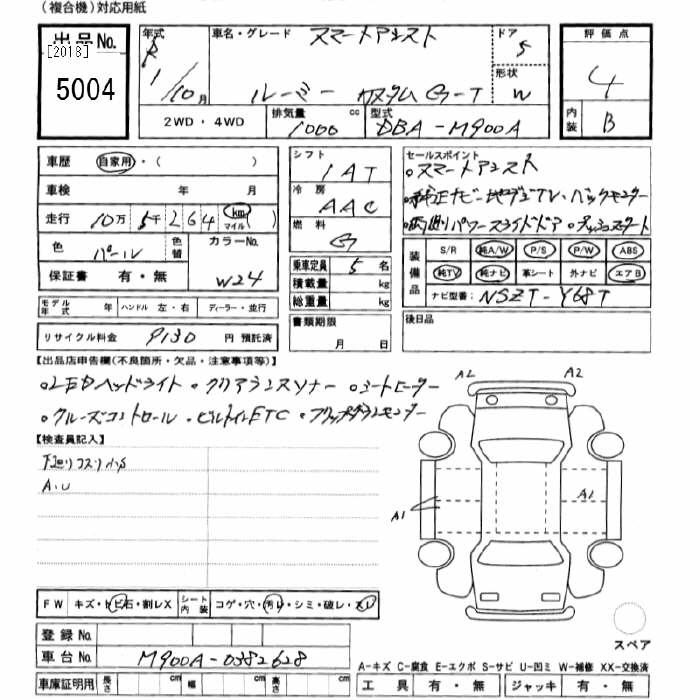 (複合機)対応用紙
出品No. [2018] 5004
年式 R 1/10月
車名・グレード スマートアシスト
ルーミー カスタム G-T
ドア 5
形状 W
評価点 4
内装 B
2WD・4WD
排気量 1000 cc
型式 DBA-M900A
車歴 自家用・( )
車検 年 月
走行 10万 5千 264 km マイル ( )
色 パール 色替 カラーNo. W24
保証書 有・無
モデル年式 年 ハンドル 左・右 ディーラー・並行
リサイクル料金 9130 円 預託済
シフト IAT
冷房 AAC
燃料 G
乗車定員 5 名
積載量 kg
総重量 kg
書類期限 月 日
セールスポイント
・スマートアシスト
・純正ナビ・地デジTV・バックモニター
・両側パワースライドドア・プッシュスタート
装備品 S/R 純A/W P/S P/W ABS
純TV 純ナビ 革シート 外ナビ エアB
ナビ型番: NSZT-Y68T
後日品
【出品店申告欄(不良箇所・欠品・注意事項等)】
・LEDヘッドライト ・クリアランスソナー ・シートヒーター
・クルーズコントロール ・ビルトインETC ・フリップダウンモニター
【検査員記入】
下廻りコスリ小キズ
A.U
A2 A2
A1 A1
FW キズ・トビ石・割レX シート内装 コゲ・穴・汚レ・シミ・破レ・スレ
スペア
登録No.
車台No. M900A-0382628
車庫証明用 長さ cm 幅 cm 高さ cm
A-キズ C-腐食 E-エクボ S-サビ U-凹ミ W-補修 XX-交換済
工具 有・無 ジャッキ 有・無